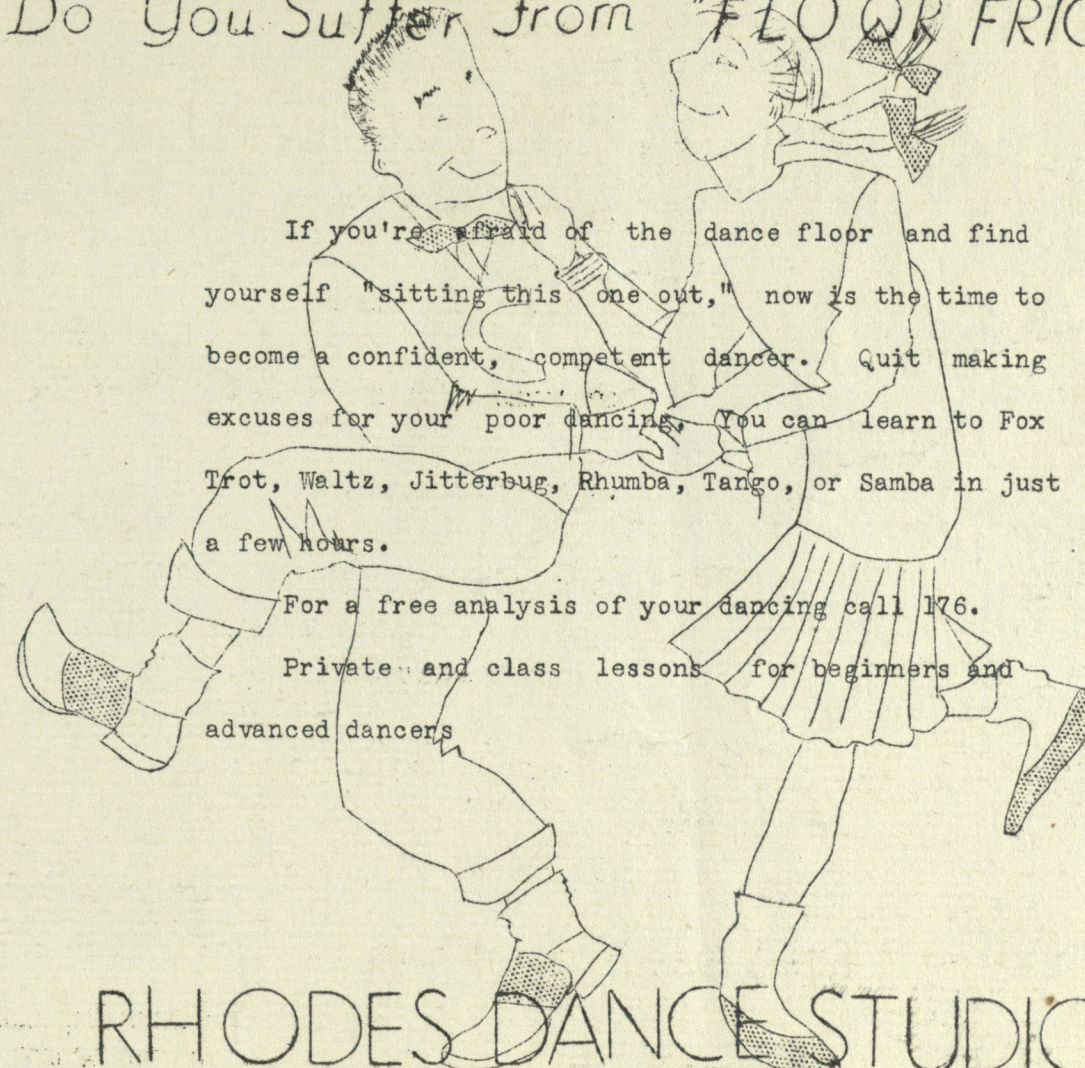 Do You Suffer from "FLOOR FRIG
If you're afraid of the dance floor and find
yourself "sitting this one out," now is the time to
become a confident, competent dancer. Quit making
excuses for your poor dancing. You can learn to Fox
Trot, Waltz, Jitterbug, Rhumba, Tango, or Samba in just
a few hours.
For a free analysis of your dancing call 176.
Private and class lessons for beginners and
advanced dancers
S
RHODES DANCE STUDIO